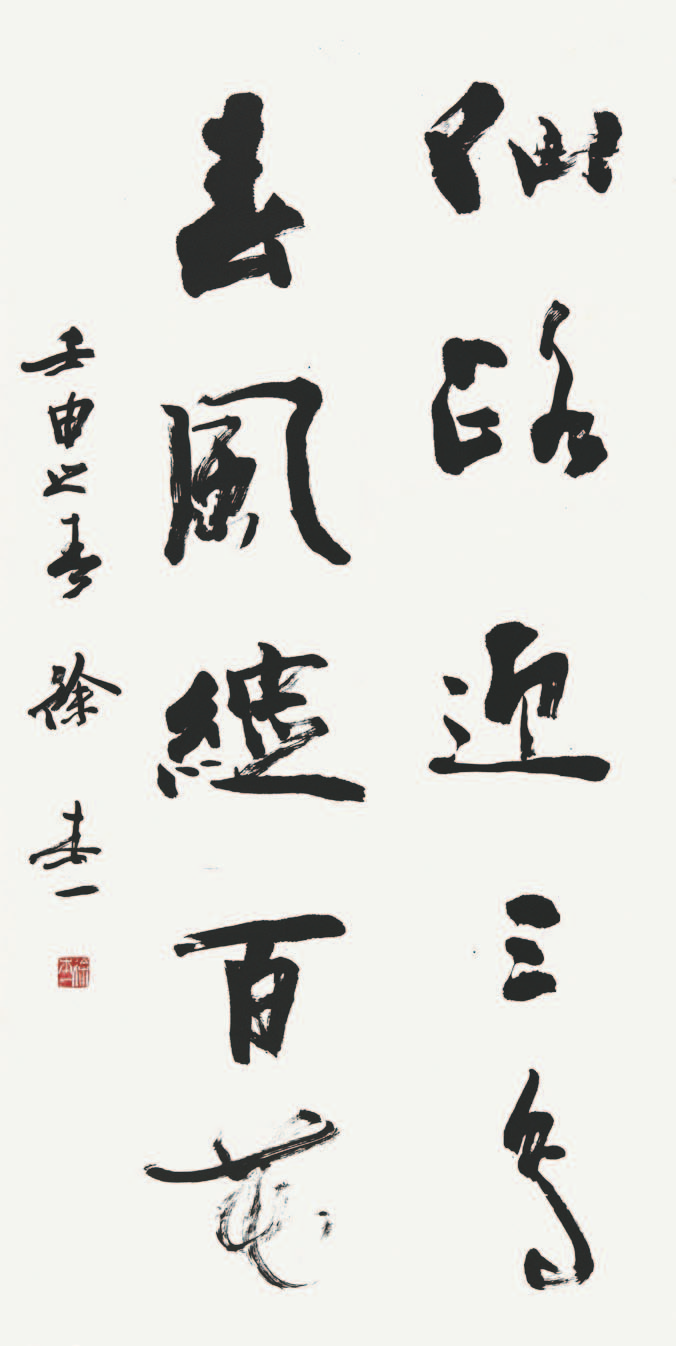 仙路迎三鳥
春風綻百花
壬申之春 徐本一
徐本一